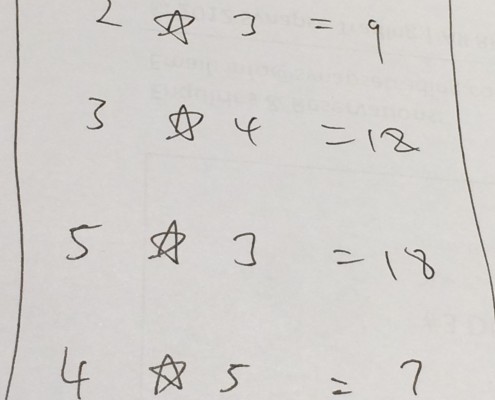 2 ☆ 3 = 9
3 ☆ 4 =
5 ☆ 3 = 18
4 ☆ 5 = ?